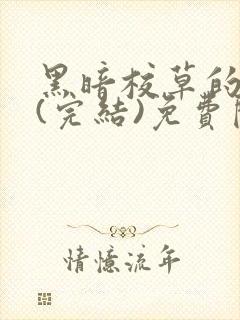 黑暗校草的
(完結)免費
情憶流年